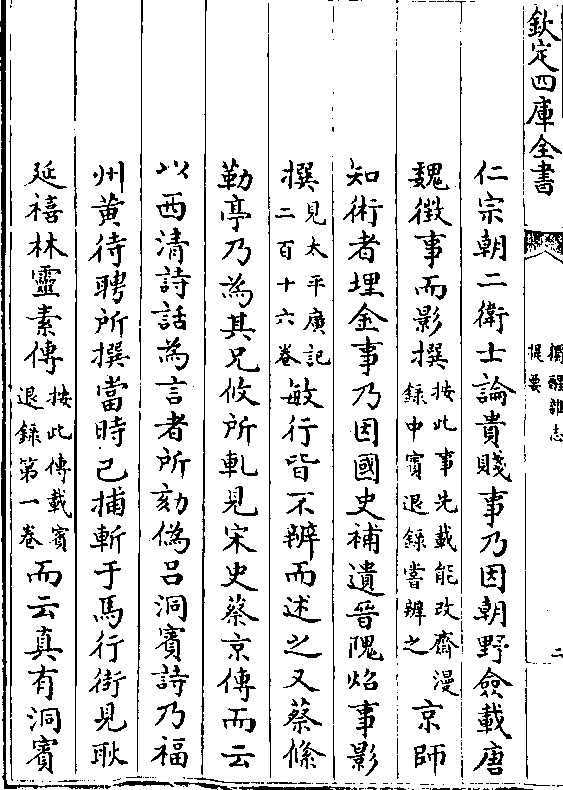 欽定四庫全書
獨醒雜志
提要
二
仁宗朝二衛士論貴賤事乃因朝野僉載唐
魏徵事而影撰按此事先載能改齋漫錄中賓退錄嘗辨之京師
知術者埋金事乃因國史補遺晉隗炤事影
撰見太平廣記二百十六卷敏行皆不辨而述之又蔡絛
勒停乃為其兄攸所軋見宋史蔡京傳而云
以西清詩話為言者所劾偽呂洞賓詩乃福
州黃待聘所撰當時已捕斬于馬行街見耿
延禧林靈素傳按此傳載賓退錄第一卷而云真有洞賓